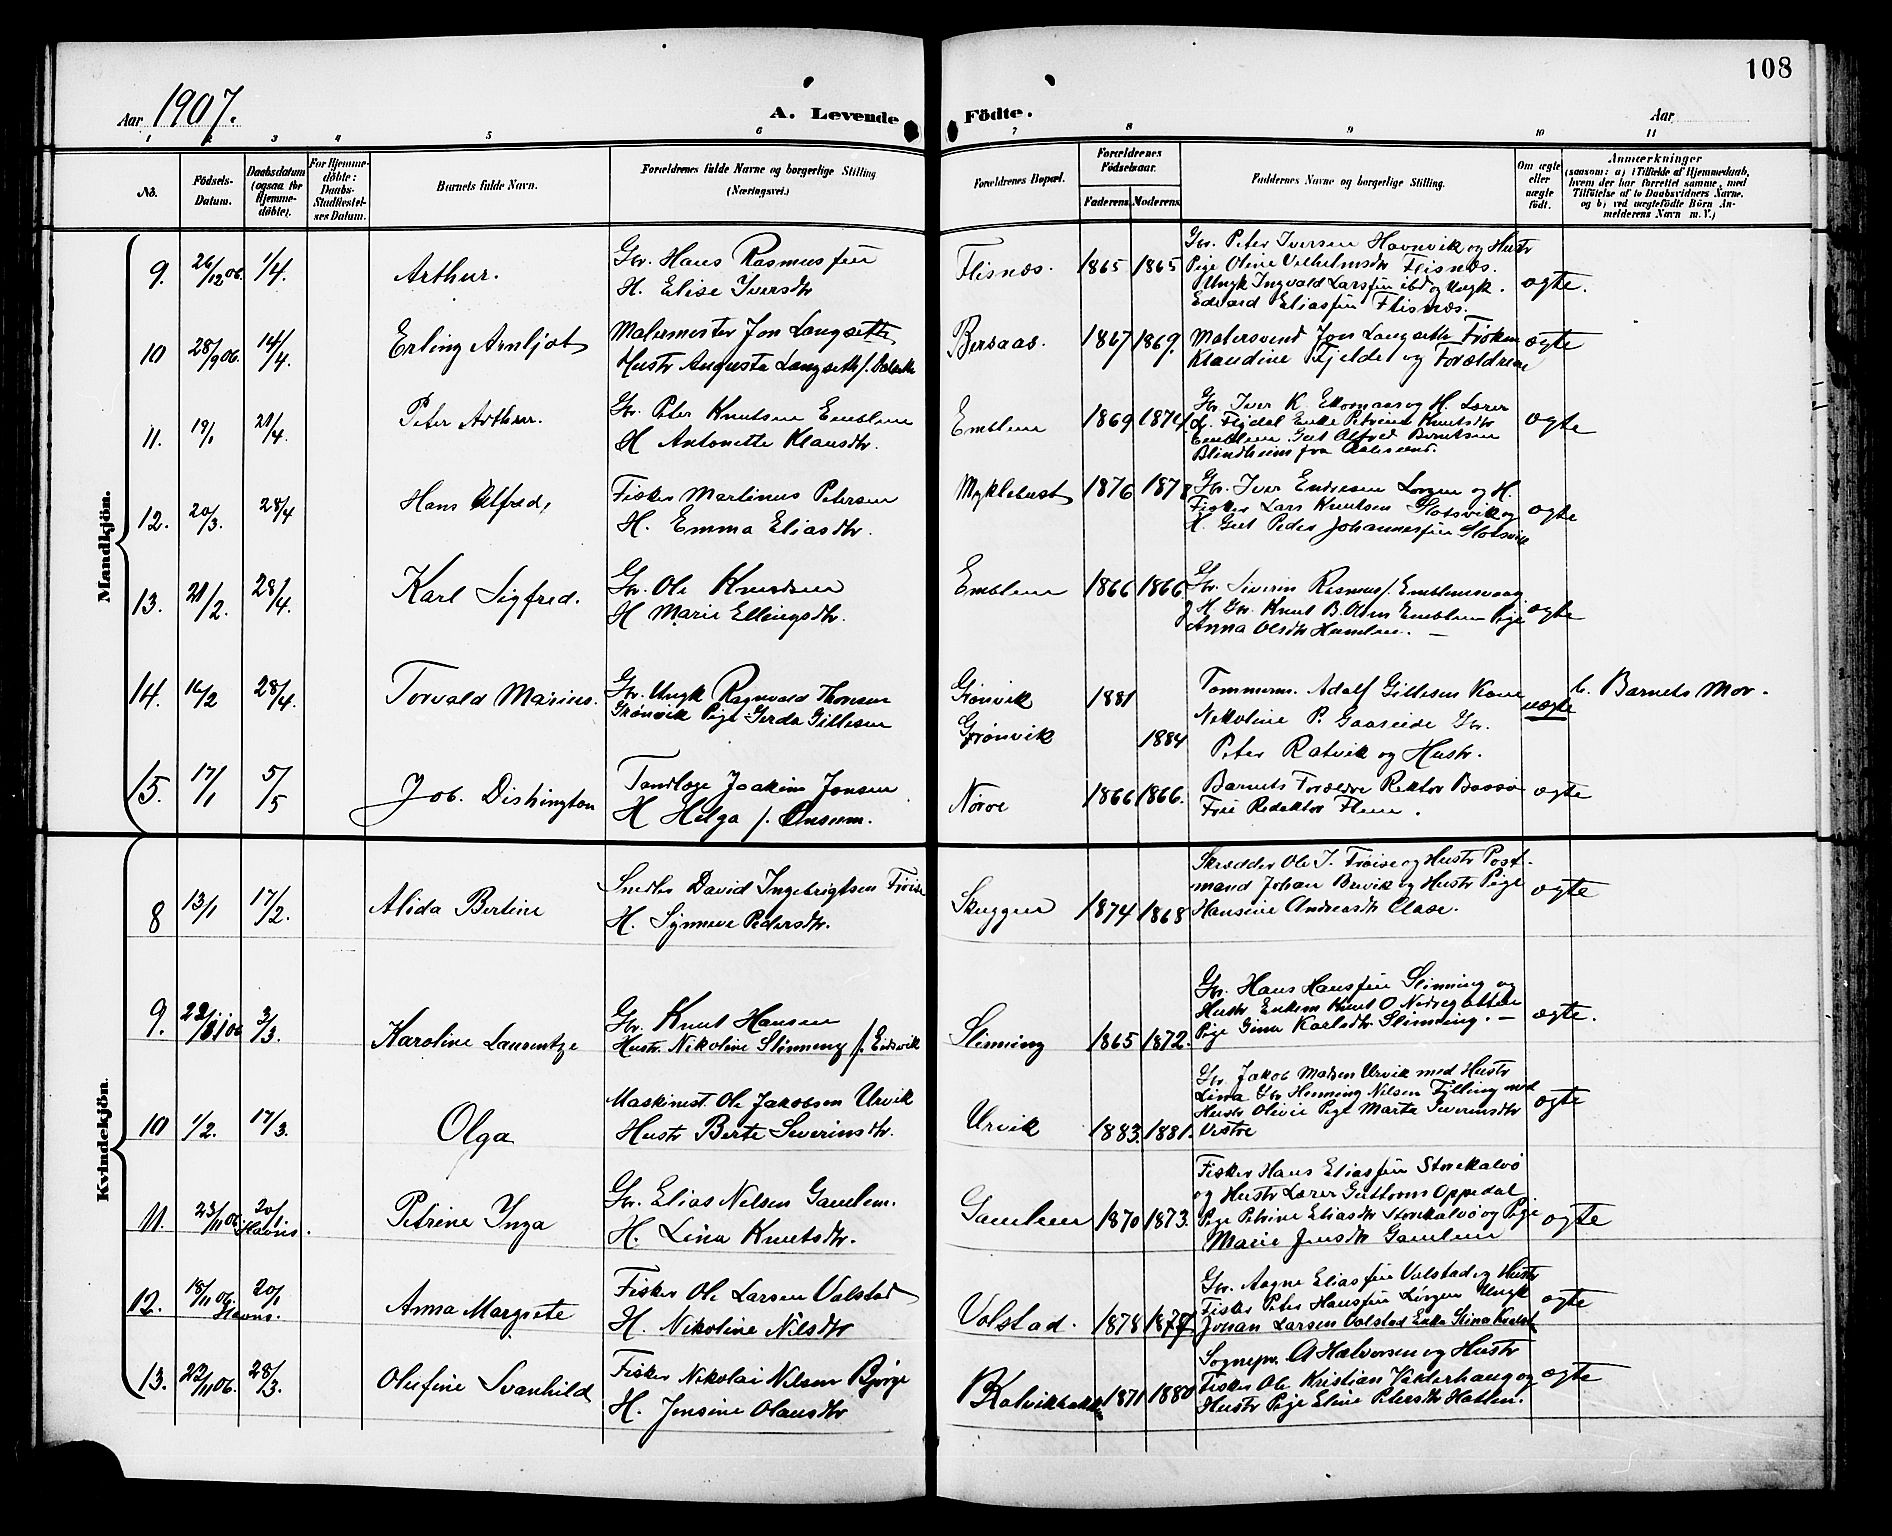 108
Aar 1907.
A. Levende Födte.
Aar
1 2 3 4 5 6 7 8 9 10 11
No.
Födsels-Datum.
Daabsdatum (ogsaa for Hjemme-döbte).
For Hjemme-döbte: Daabs-Stadfæstel-ses Datum.
Barnets fulde Navn.
Forældrenes fulde Navne og borgerlige Stilling (Næringsvei.)
Forældrenes Bopæl.
Forældrenes Födselsaar.
Faderens. Moderens.
Faddernes Navne og borgerlige Stilling.
Om ægte eller uægte födt.
Anmærkninger
(saasom: a) i Tilfælde af Hjemmedaab, hvem der har forrettet samme, med Tilföielse af to Daabsvidners Navne. og b) ved uægtefödte Börn An-melderens Navn m. V.)
Mandkjön.
9. 26/12 06. 1/4. Arthur.
Gbr. Hans Rasmussen
H. Elise Iversdtr
Flisnes. 1865 1865
Gbr. Peter Iversen Havnvik og Hustr
Pige Oline Vilhelmsdtr Flisnes.
Ungk Ingvald Larssen ibd og Ungk.
Edvard Eliassen Flisnæs.
ægte.
10 28/9 06. 14/4. Erling Arnljot
Malermester Jon Langseth
Hustr Augusta Langseth f.
Bersaas. 1867 1869.
Malersvend Jon Langseth Frøken
Klaudine Fjelde og Forældrene
ægte
11. 19/1 21/4. Peter Arthur.
Gbr. Peter Knutsen Emblem
H Antonette Klausdtr.
Emblem 1869 1874
Gbr. Iver K. Ekornaas og H. Lærer
Enke Petrine Knutsdtr
Emblem Gut Alfred Berntsen
Blindheim fra Aalesund.
ægte
12. 20/3. 28/4 Hans Alfred,
Fisker Martinus Petersen
H. Emma Eliasdtr.
Myklebust 1876 1878
Gbr. Iver Endresen Lorgen og H.
Fisker Lars Knutsen Slotsvik og
H. Gut Peder Johannessen Slotsvik
ægte
13. 21/2. 28/4. Karl Sigfred.
Gbr. Ole Knudsen
H Marie Ellingsdtr.
Emblem 1866 1866.
Gbr. Siverin Rasmus/. Emblemsvaag
og H. Gbr. Knut B. Olsen Emblem Pige
Anna Olsdtr Humlen. –
ægte
14. 16/2 28/4. Torvald Marius.
Gbr. Ungk Ragnvald Thomsen
Grønvik Pige Gerda Gillesen
Grønvik 1881
Grønvik 1884
Tømmerm. Adolf Gillesen Kone
Nikoline P. Gaaseide Gbr.
Peter Ratvik og Hustr.
uægte
b. Barnets Mor.
15. 17/1 5/5 Job. Dishington
Tandlæge Joakim Jonsen
H Helga f. Onsum.
Nørve 1866 1866.
Barnets Forældre Rektor Bassø
Frue Redektor Flem.
ægte
Kvindekjön.
8 13/1 17/2. Alida Bertine
Snedker David Ingebrigtsen Frøise
H. Synneve Pedersdtr.
Skuggen 1874 1868
Skrædder Ole I. Frøise og Hustr Post-
mand Johan Brevik og Hustr Pige
Hansine Andreasdtr Clase.
ægte
9. 3/3. Karoline Laurentze
Gbr. Knut Hansen
Hustr. Nikoline Slinning f. Eidsvik
Slinning 1865 1872.
Gbr. Hans Hanssen Slinning og
Hustr Enkem Knut O Nedregotten
Pige Gina Karlsdtr Slinning. –
ægte.
10 1/2. 17/3. Olga
Maskinist Ole Jakobsen Urvik
Hustr Berte Severinsdtr.
Urvik 1883. 1881.
Gbr Jakob Madsen Urvik med Hustr
Lina Gbr Henning Nilsen Fylling med
Hustr Olivie Pige Marta Siverinsdtr
Vestre
ægte
11. 23/11 06 20/1 Havns. Petrine Inga
Gbr. Elias Nilsen Gamlem.
H. Lina Knutsdtr.
Gamlem 1870 1873.
Fisker Hans Eliassen Storekalvø
og Hustr Lærer Guttorm Oppedal
Pige Petrine Eliasdtr Storekalvø og Pige
Marie Jensdtr Gamlem
ægte
12. 18/11 06. 20/1 Havns. Anna Margrete
Fisker Ole Larsen Valstad
H. Nikoline Nilsdtr
Valstad. 1878 1877
Gbr. Aagne Eliassen Valstad og Hustr
Fisker Peter Hanssen Lorgen Ungk
Johan Larsen Valstad Enke Stina
ægte
13. 22/11 06. 28/3. Olufine Svanhild
Fisker Nikolai Nilsen Bjørge
H. Jensine Olausdtr
Kalvikbakken 1871 1880
Sognepr. A Halvorsen og Hustr
Fisker Ole Kristian Valderhaug og
Hustr Pige Eline Petersdtr Hatlen.
ægte